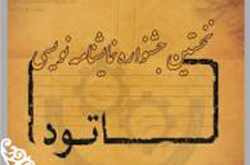 نخستین جشنواره نمایشنامه نویسی
ساتود